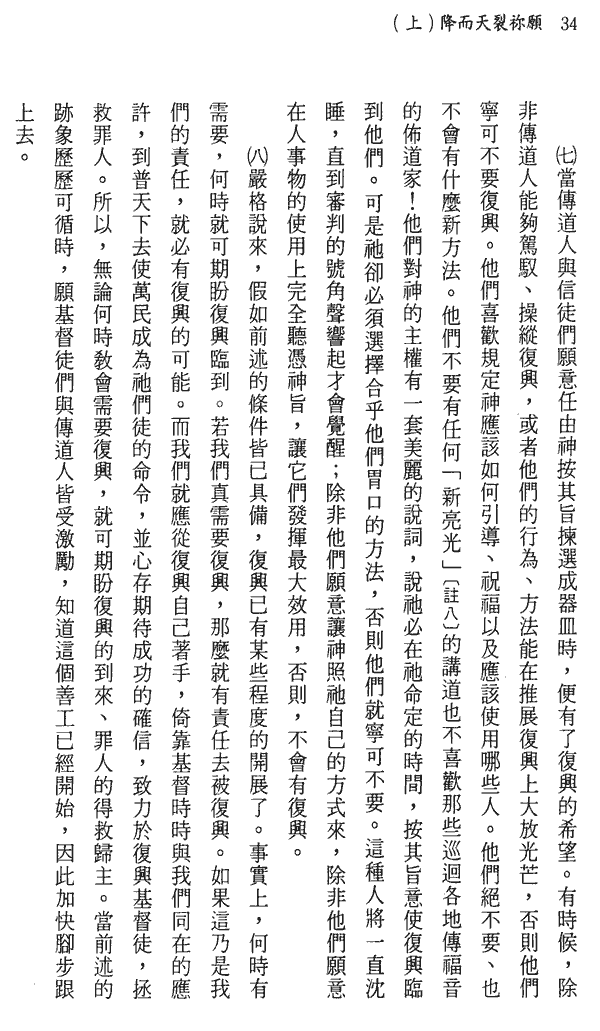 34　願祢裂天而降（上）
㈦當傳道人與信徒們願意任由神按其旨揀選成器皿時，便有了復興的希望。有時候，除
非傳道人能夠駕馭、操縱復興，或者他們的行為、方法能在推展復興上大放光芒，否則他們
寧可不要復興。他們喜歡規定神應該如何引導、祝福以及應該使用哪些人。他們絕不要、也
不會有什麼新方法。他們不要有任何「新亮光」〔註八〕的講道也不喜歡那些巡迴各地傳福音
的佈道家！他們對神的主權有一套美麗的說詞，說祂必在祂命定的時間，按其旨意使復興臨
到他們。可是祂卻必須選擇合乎他們胃口的方法，否則他們就寧可不要。這種人將一直沈
睡，直到審判的號角聲響起才會覺醒；除非他們願意讓神照祂自己的方式來，除非他們願意
在人事物的使用上完全聽憑神旨，讓它們發揮最大效用，否則，不會有復興。
㈧嚴格說來，假如前述的條件皆已具備，復興已有某些程度的開展了。事實上，何時有
需要，何時就可期盼復興臨到。若我們真需要復興，那麼就有責任去被復興。如果這乃是我
們的責任，就必有復興的可能。而我們就應從復興自己著手，倚靠基督時時與我們同在的應
許，到普天下去使萬民成為祂們徒的命令，並心存期待成功的確信，致力於復興基督徒，拯
救罪人。所以，無論何時教會需要復興，就可期盼復興的到來、罪人的得救歸主。當前述的
跡象歷歷可循時，願基督徒們與傳道人皆受激勵，知道這個善工已經開始，因此加快腳步跟
上去。